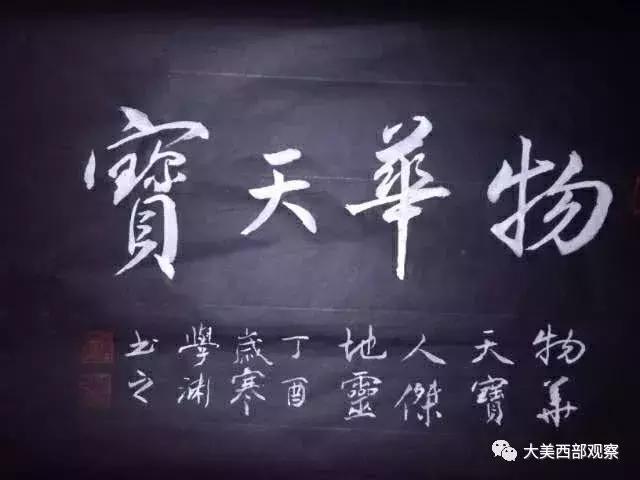 物華天寶
物華
天寶
人傑
地靈
丁酉
歲寒
學渊
书之
大美西部观察